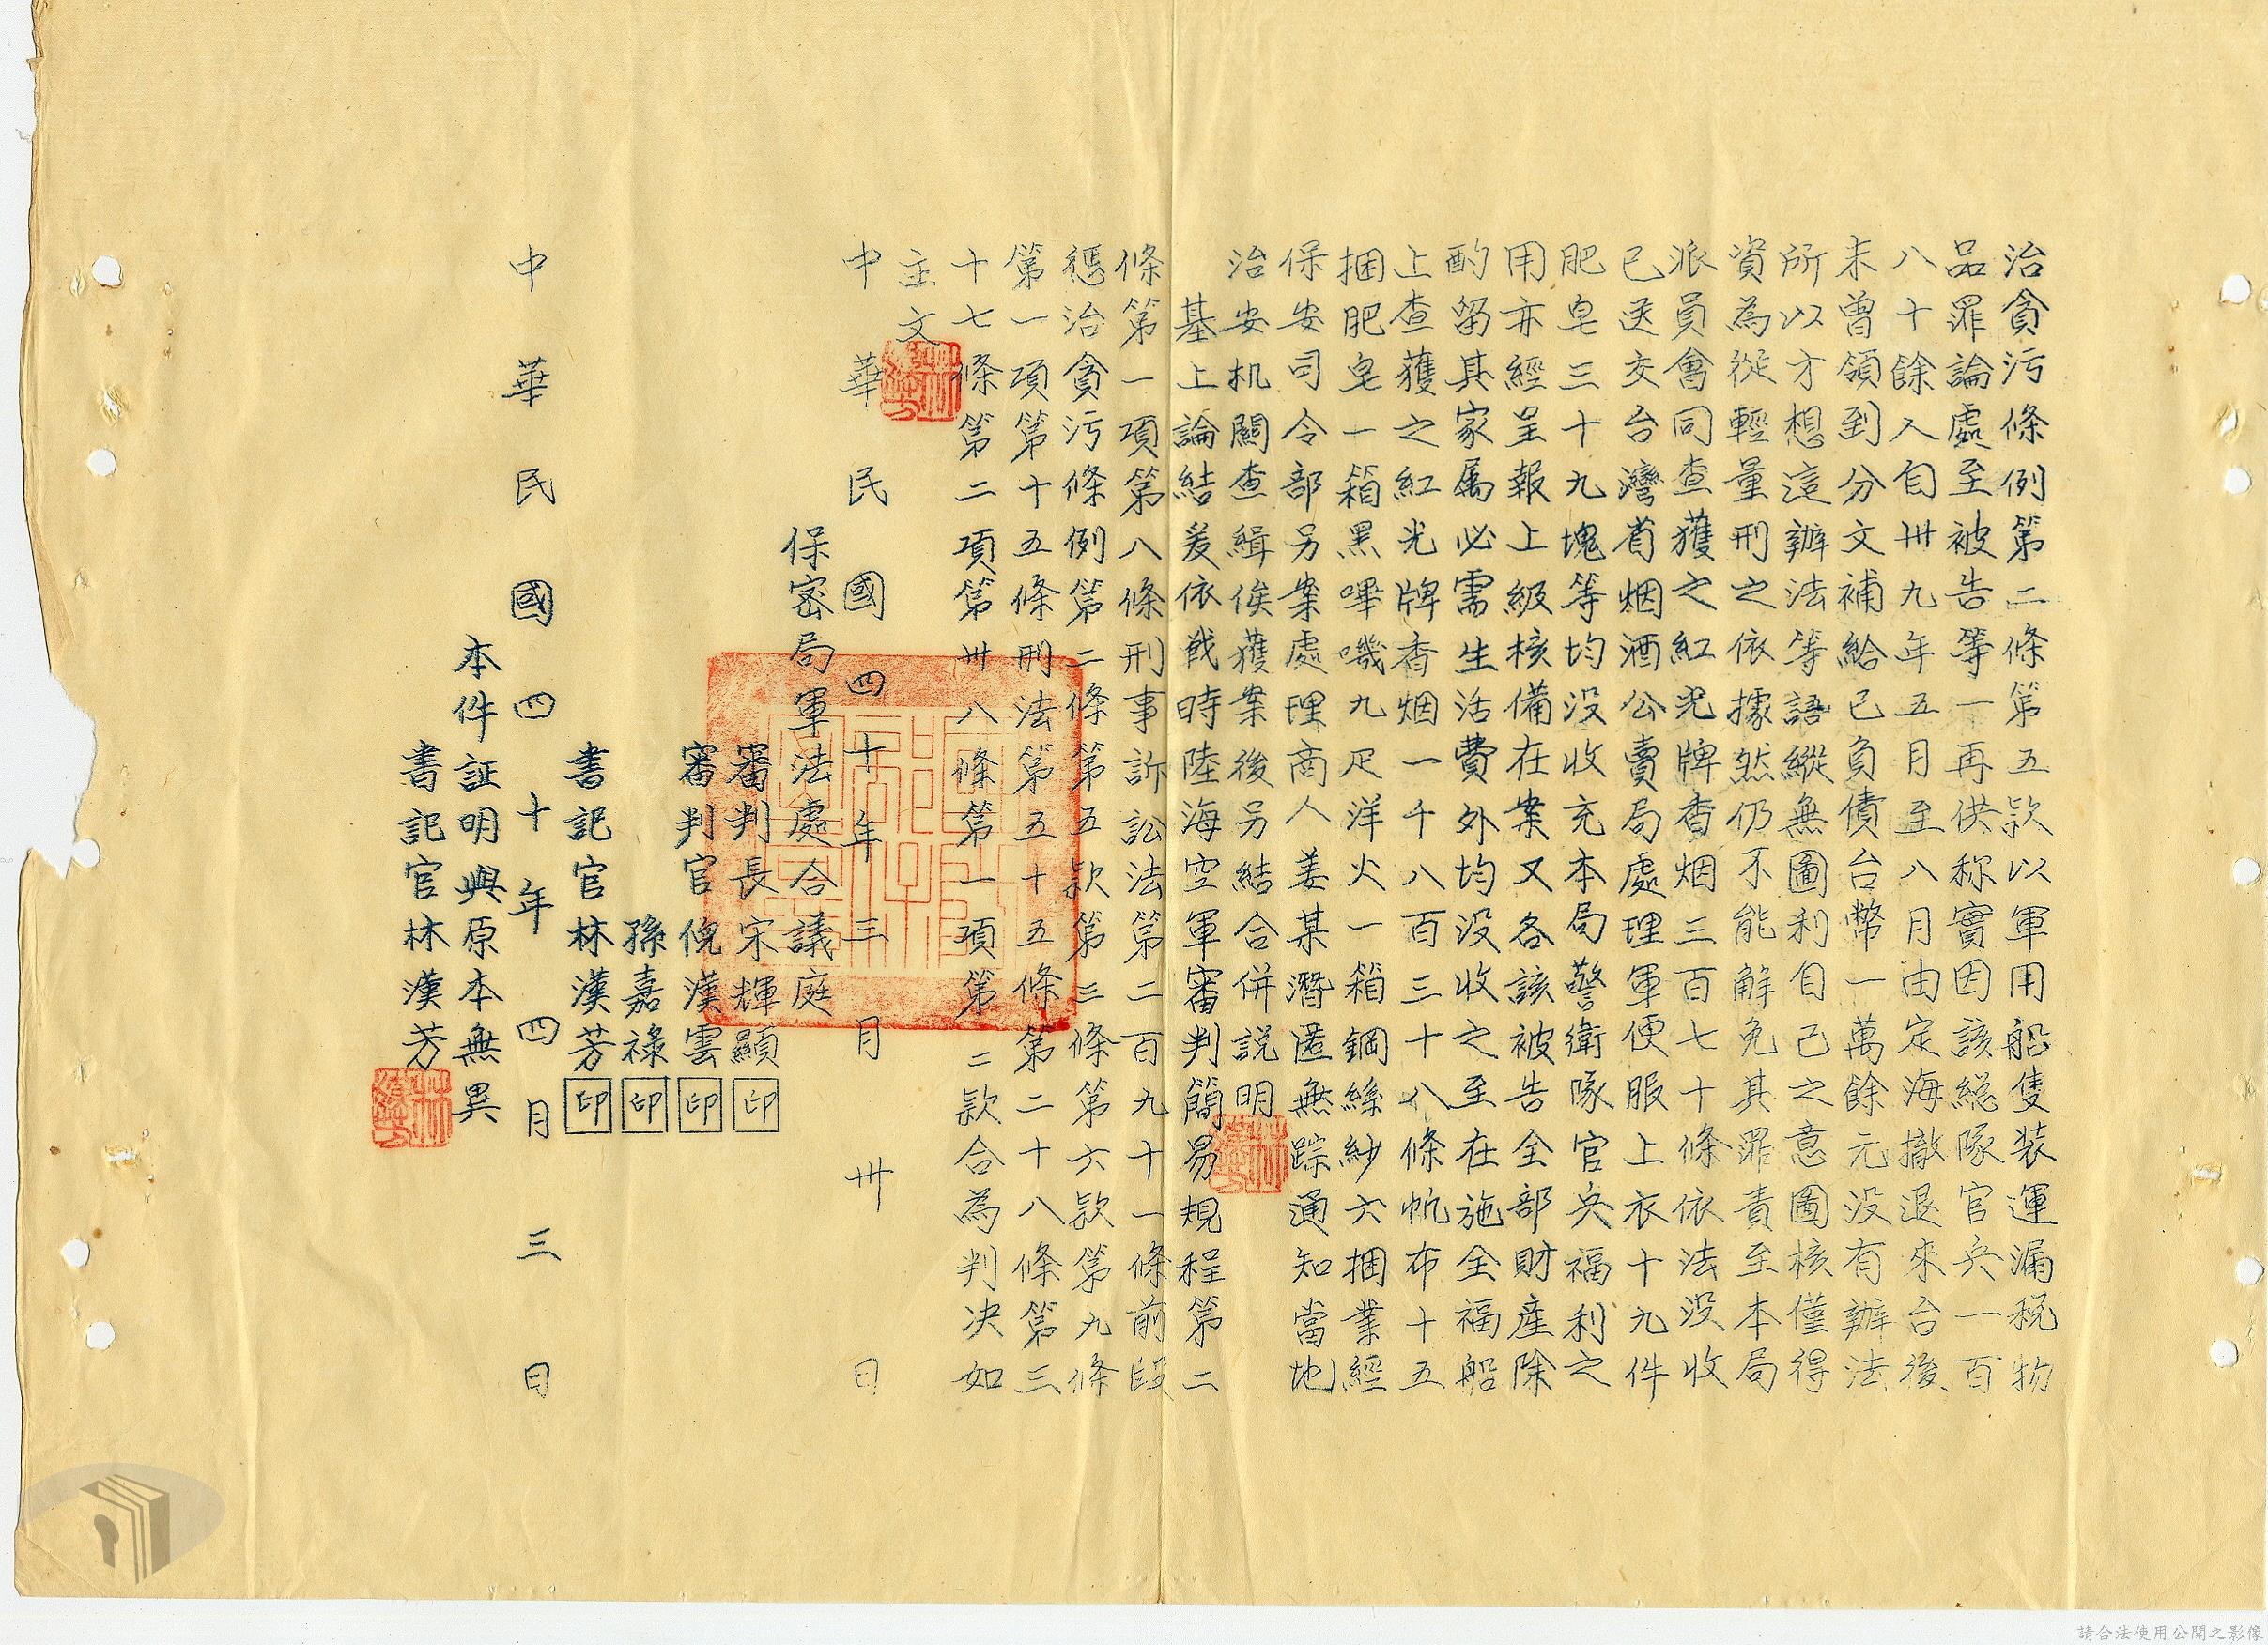 治貪污條例第二條第五款以軍用船隻裝運漏稅物
品罪論處至被告等一再供称實因該総隊官兵一百
八十餘人自卅九年五月至八月由定海撤退來台後
未曾領到分文補給已負債台幣一萬餘元没有辦法
所以才想這辦法等語縱無圖利自己之意圖核僅得
資為從輕量刑之依據然仍不能解免其罪責至本局
派員會同查獲之紅光牌香烟三百七十條依法没收
已送交台灣省烟酒公賣局處理軍便服上衣十九件
肥皂三十九塊等均没收充本局警衛隊官兵福利之
用亦經呈報上級核備在案又各該被告全部財產除
酌留其家属必需生活費外均没收之至在施全福船
上查獲之紅光牌香烟一千八百三十八條帆布十五
捆肥皂一箱黑嗶嘰九疋洋火一箱鋼絲紗六捆業經
保安司令部另案處理商人姜某潛匿無踪通知當地
治安机關查緝俟獲案後另結合併説明
基上論結爰依戡時陸海空軍審判簡易規程第二
條第一項第八條刑事訴訟法第二百九十一條前段
懲治貪污條例第二條第五款第三條第六款第九條
第一項第十五條刑法第五十五條第二十八條第三
十七條第二項第卅八條第一項第二款合為判决如
主文
中華民國四十年三月卅日
保密局軍法處合議庭
審判長宋輝顯印
審判官倪漢雲印
孫嘉祿印
書記官林漢芳印
中華民國四十年四月三日
本件証明與原本無異
書記官林漢芳
請合法使用公開之影像